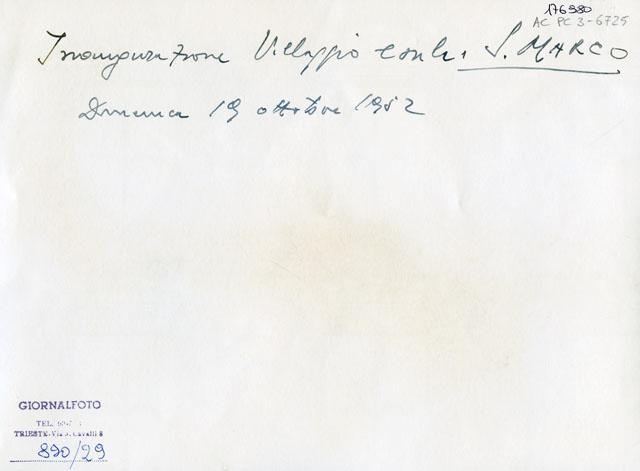 176980
AC PC 3-6725
Inaugurazione Villaggio S. MARCO
Domenica 19 ottobre 1952
GIORNALFOTO
TEL.
TRIESTE
890/29